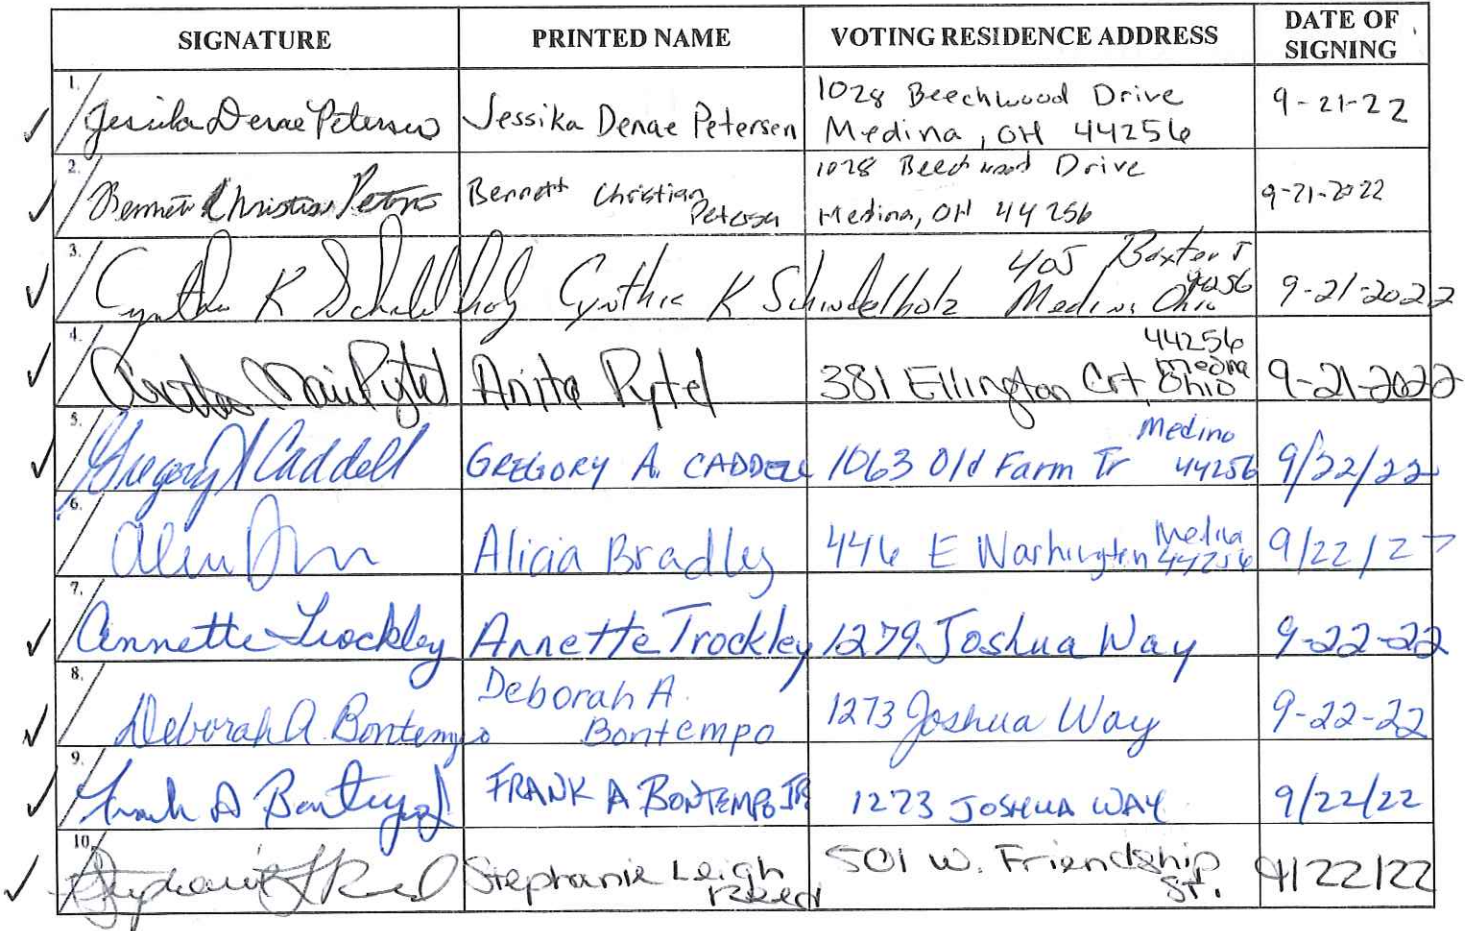 SIGNATURE PRINTED NAME VOTING RESIDENCE ADDRESS DATE OF SIGNING
1. Jessika Denae Petersen Jessika Denae Petersen 1028 Beechwood Drive 9-21-22
Medina, OH 44256
2. Bennett Christian Bennett Christian 1028 Beechwood Drive 9-21-2022
Petersen Medina, OH 44256
3. Cynthia K Schindelholz Cynthia K Schindelholz 405 Baxter 9-21-2022
Medina Ohio
4. Anita Pytel Anita Pytel 381 Ellington Crt, 44256 Medina Ohio 9-21-2022
5. Gregory A Caddell GREGORY A. CADDELL 1063 Old Farm Tr Medina 44256 9/22/22
6. Alicia Bradley 446 E Washington Medina 44256 9/22/22
7. Annette Trockley Annette Trockley 1279 Joshua Way 9-22-22
8. Deborah A. Bontempo Deborah A. 1273 Joshua Way 9-22-22
Bontempo
9. Frank A Bontempo FRANK A BONTEMPO JR 1273 JOSHUA WAY 9/22/22
10. Stephanie L Reed Stephanie Leigh 501 W. Friendship 9/22/22
Reed St.